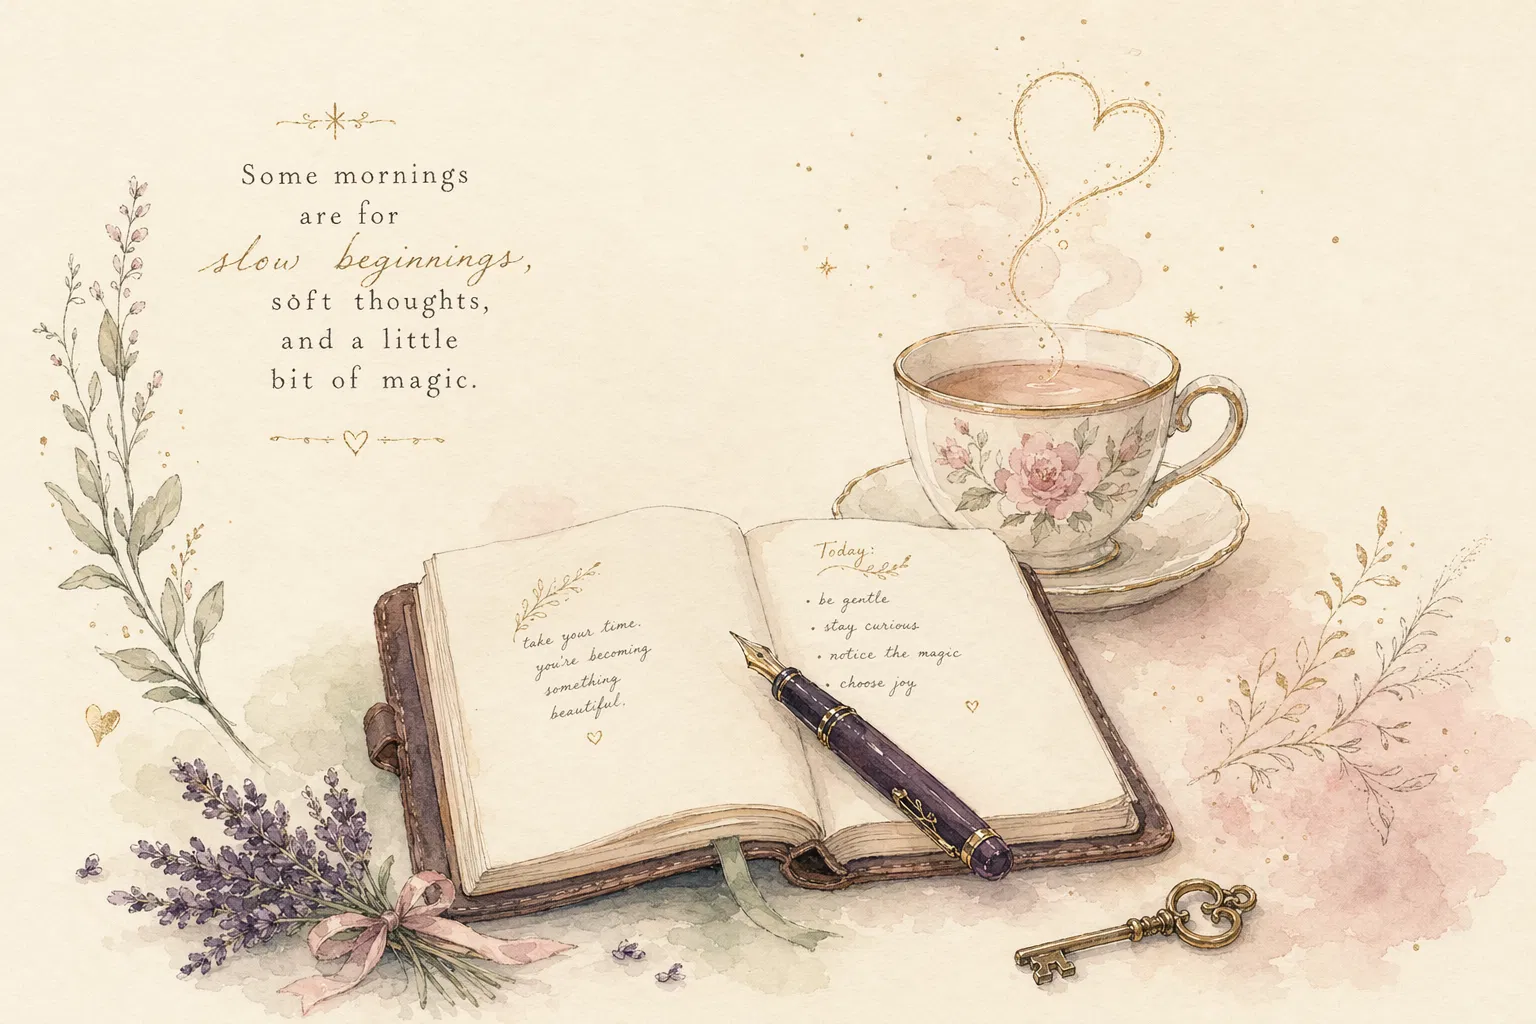 Some mornings
are for
slow beginnings,
soft thoughts,
and a little
bit of magic.
take your time.
you're becoming
something
beautiful.
Today:
• be gentle
• stay curious
• notice the magic
• choose joy